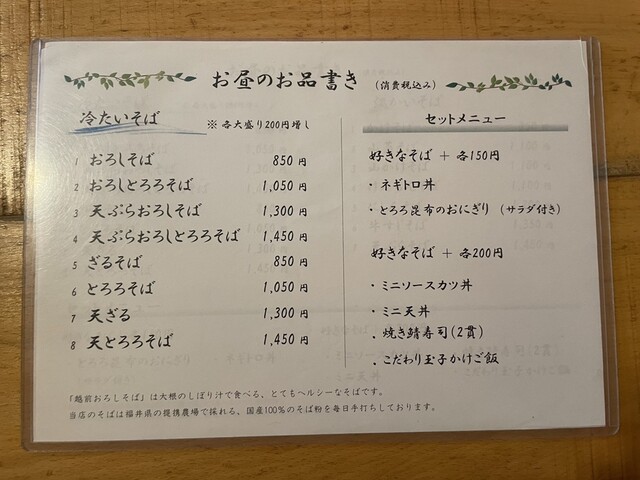 お昼のお品書き (消費税込み)
冷たいそば
※ 各大盛り200円増し
1 おろしそば 850 円
2 おろしとろろそば 1,050 円
3 天ぷらおろしそば 1,300 円
4 天ぷらおろしとろろそば 1,450 円
5 ざるそば 850 円
6 とろろそば 1,050 円
7 天ざる 1,300 円
8 天とろろそば 1,450 円
セットメニュー
好きなそば + 各150円
・ネギトロ丼
・とろろ昆布のおにぎり (サラダ付き)
好きなそば + 各200円
・ミニソースカツ丼
・ミニ天丼
・焼き鯖寿司(2貫)
・こだわり玉子かけご飯
「越前おろしそば」は大根のしぼり汁で食べる、とてもヘルシーなそばです。
当店のそばは福井県の提携農場で採れる、国産100%のそば粉を毎日手打ちしております。